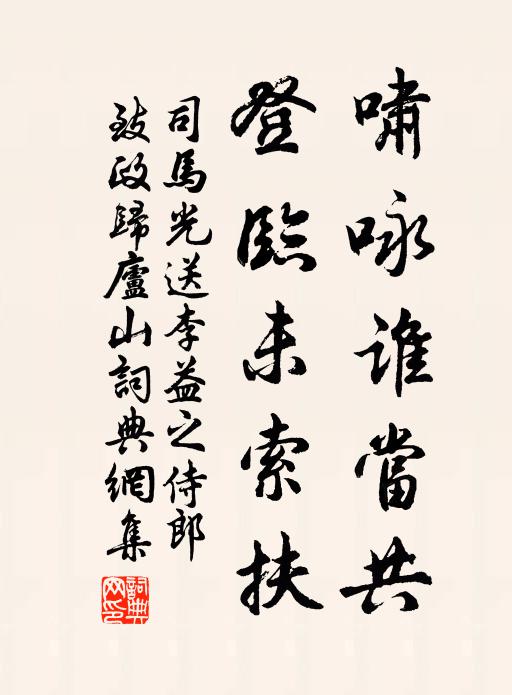 嘯咏誰當共
登臨未索扶
司馬光送李益之侍郎
致政歸廬山詞典網集
詞典
网印